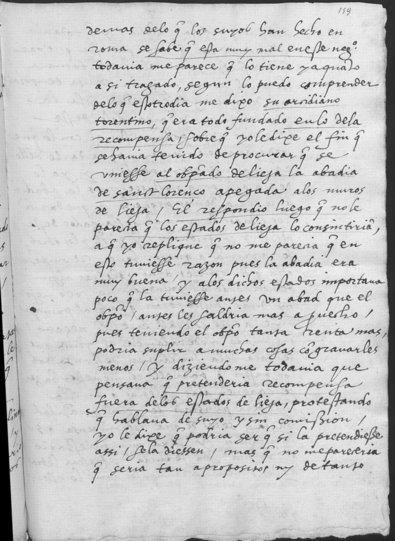 159
demas delo q̃ los suyos han hecho en
roma se sabe q̃ esta muy mal en este nego.
todavia me parece q̃ lo tiene ya quasi
assi tragado, segun lo puedo comprender
delo q̃ essotrodia me dixo su arcidiano
torentino, q̃ era todo fundado en lo dela
recompensa, sobre q̃ yo le dixe el fin q̃
se havia tenido de procurar q̃ se
uniesse al obpãdo de lieja la abadia
de saint Lorenco apegada alos muros
de lieja / El respondio luego q̃ no le
parecia q̃ los estados de lieja lo consintiriã,
a q̃ yo replique q̃ no me parecia q̃ en
esto tuviesse razon pues la abadia era
muy buena y alos dichos estados importava
poco q̃ la tuviesse antes un abad que el
obpo / antes les saldria mas a puecho /
pues teniendo el obpo tanta renta mas,
podria suplir a muchas cosas cõ gravarles
menos / y diziendome todavia que
pensava q̃ pretenderia recompensa
fuera delos estados de lieja, protestando
q̃ hablava de suyo, y sin comission
yo le dixe q̃ podria ser q̃ si la pretendiesse
assi / sela diessen / mas q̃ no me pareceria
q̃ seria tan a proposito, ny de tanto